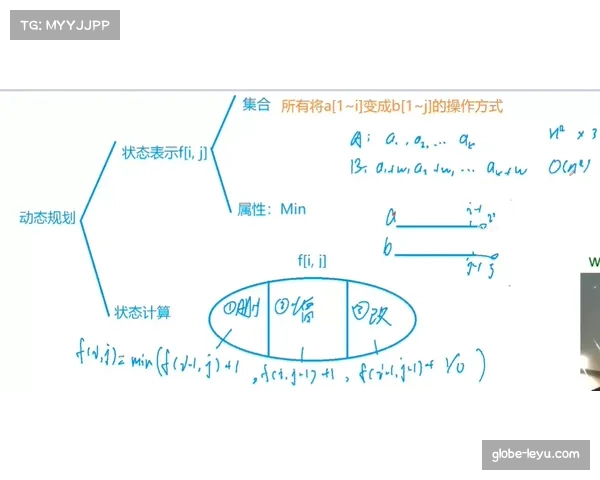 TG: MYYJJPP
集合
所有将a[1~i]变成b[1~j]的操作方式
A: a₁, a₂, ... aₖ
n² × 3
状态表示f[i, j]
B: a₁+w, a₂+w, ... aₖ+w
O(n²)
属性：Min
动态规划
a
i-1 i
b
j-1 j
f[i, j]
W
状态计算
①删 ②增 ③改
f(i,j)=min(f(i-1,j)+1, f(i,j-1)+1, f(i-1,j-1)+1/0)
globe-leyu.com